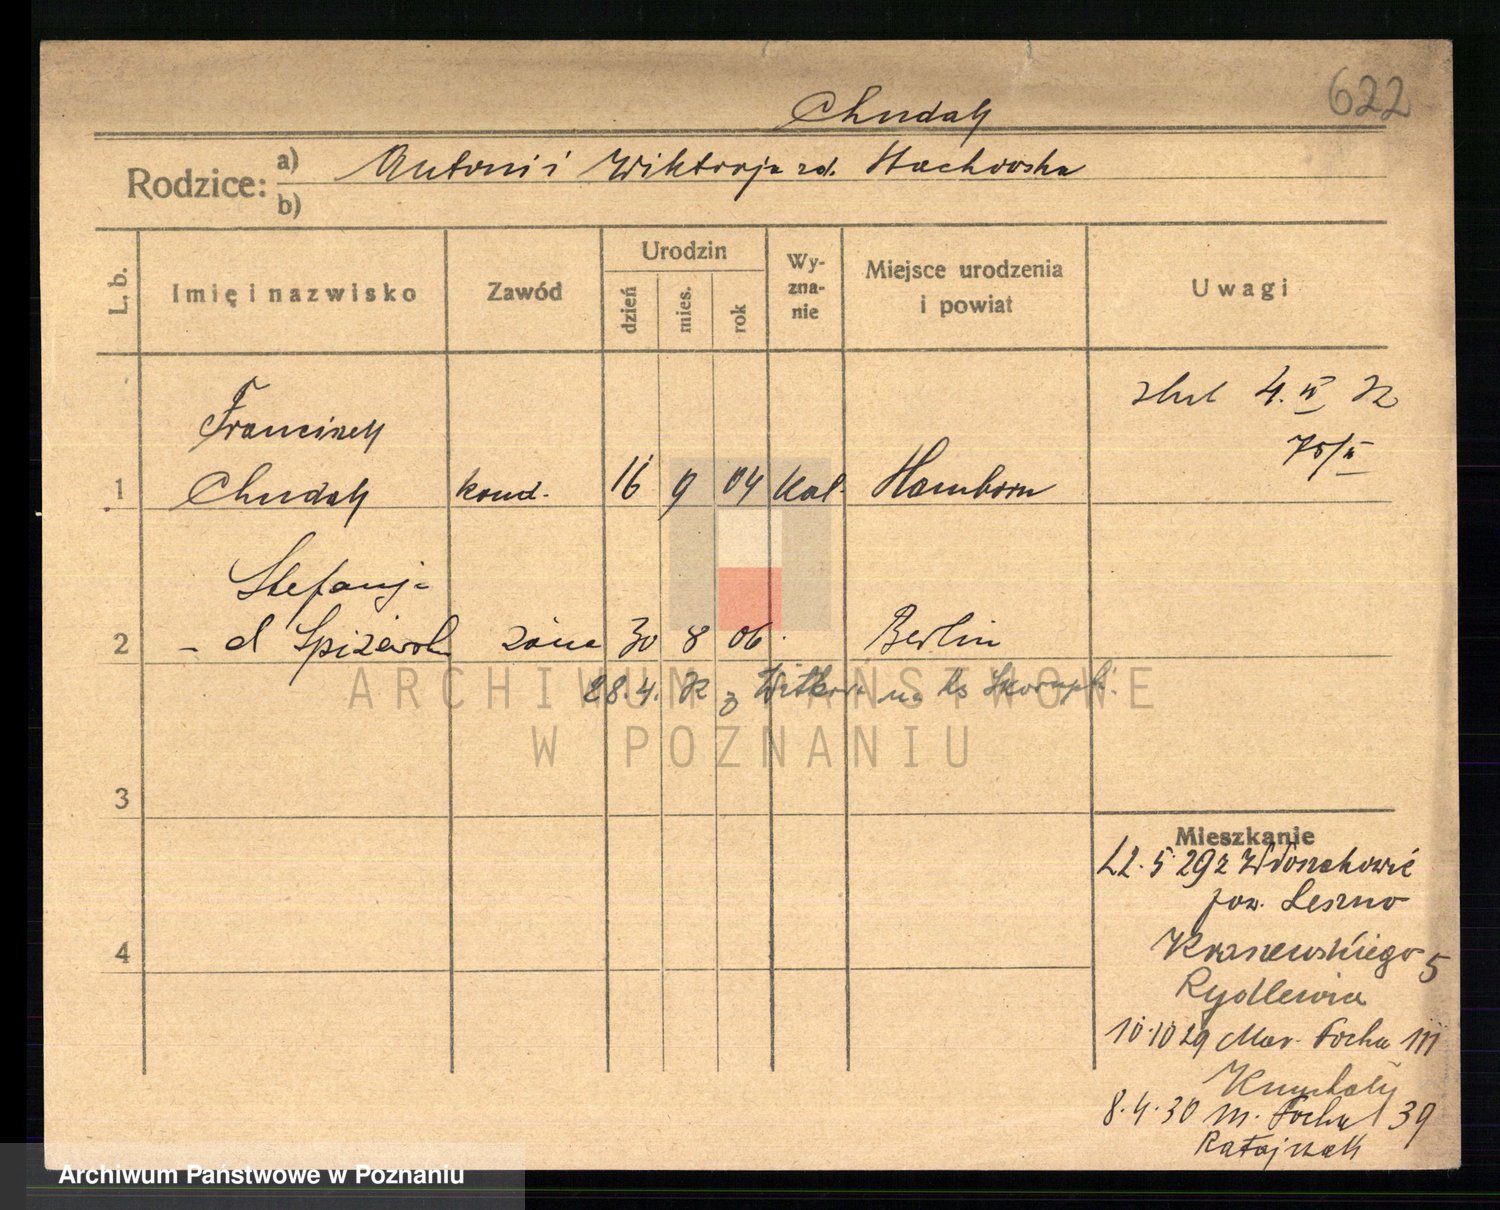 622
Chudak
Rodzice: a) Antoni i Wiktorja zd. Stachowska
b)
L. b.
Imię i nazwisko
Zawód
Urodzin
dzień
mies.
rok
Wy-
zna-
nie
Miejsce urodzenia
i powiat
Uwagi
4. IV 32
Franciszek
1 Chudak kond. 16 9 04 kat. Hamborn
Stefanja
2 - d zona 30 8 06 Berlin
28. 4. z na
3
4
Mieszkanie
22. 5 29 z Włoszakowic
pow. Leszno
Kraszewskiego 5
Rydlewicz
10.10 29 Mar. Focha 111
8.4.30 M. Focha 39
Ratajczak
ARCHIWUM PAŃSTWOWE
W POZNANIU
Archiwum Państwowe w Poznaniu